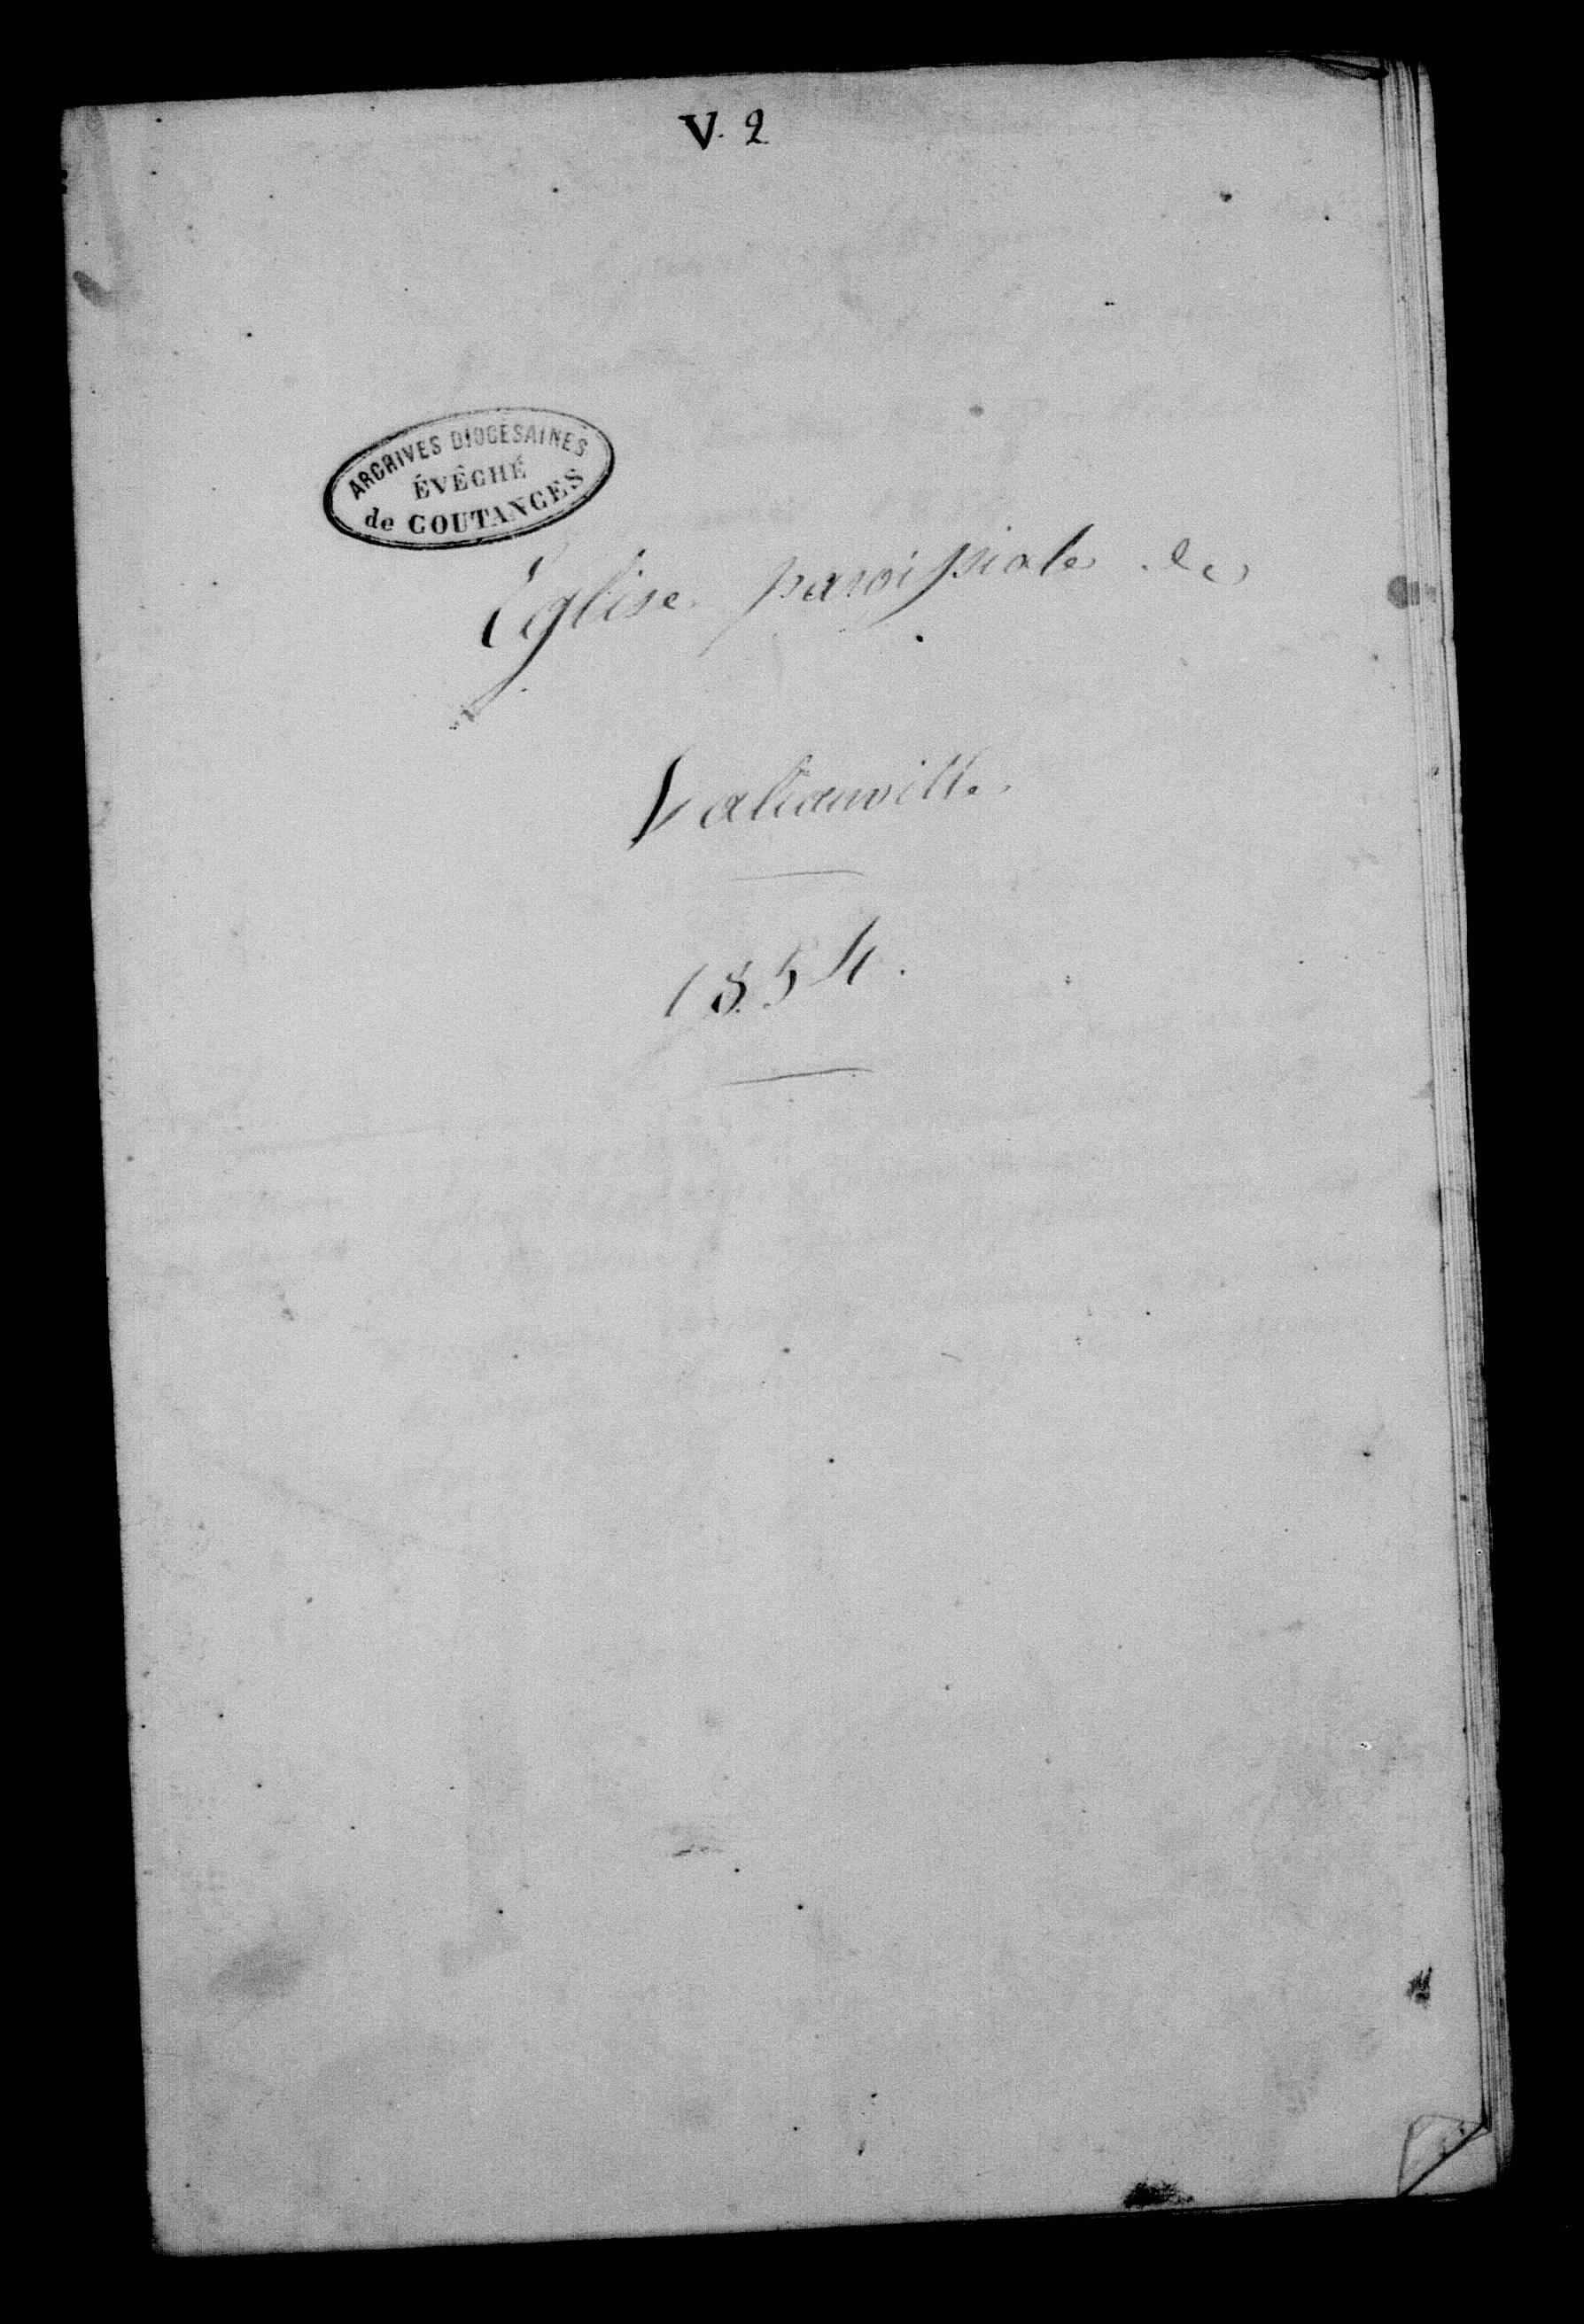 V. 2
ARCHIVES DIOCÉSAINES
ÉVÊCHÉ
de COUTANCES
Église paroissiale de
Valcanville
1854.